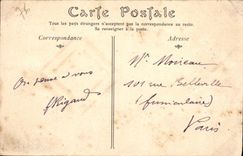 Carte Postale
Tous les pays étrangers n'acceptent pas la correspondance au recto.
Se renseigner à la poste.
Correspondance
Adresse
On pense à vous
Rigaud
Mr Moireau
101 rue Belleville
(funiculaire)
Paris